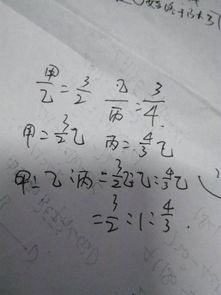 甲/乙 = 3/2 乙/丙 = 3/4
甲 = 3/2 乙 丙 = 4/3 乙
甲:乙:丙 = 3/2 乙:乙:4/3 乙
= 3/2 : 1 : 4/3 .